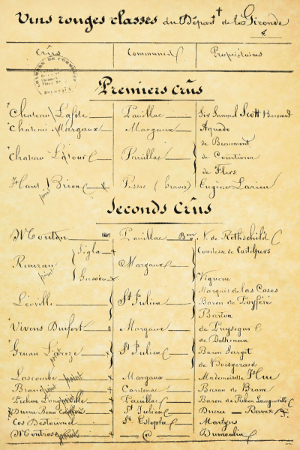 Vins rouges classés du Départ^t de la Gironde
Crûs Communes Propriétaires
Premiers Crûs
Chateau Lafite Pauillac Sir Samuel Scott
Chateau Margaux Margaux Aguado
Chateau Latour Pauillac de Beaumont
de Courtivron
de Flers
Haut Brion Pessac (Graves) Eugène Larrieu
Seconds Crûs
Mouton Pauillac B^on N. de Rothschild
Rauzan Ségla Margaux Comtesse de Castelpers
Gassies Viguerie
Léoville St Julien Marquis de las Cases
Baron de Poyféré
Barton
Vivens Durfort Margaux de Puységur
de Bethmann
Gruau Laroze St Julien Baron Sarget
de Boisgerard
Lascombe Margaux Mademoiselle Hue
Brane Cantenac Baron de Brane
Pichon Longueville Pauillac Baron de Pichon Longueville
Ducru Beau Caillou St Julien Ducru Ravez
Cos Destournel St Estèphe Martyns
Montrose Dumoulin